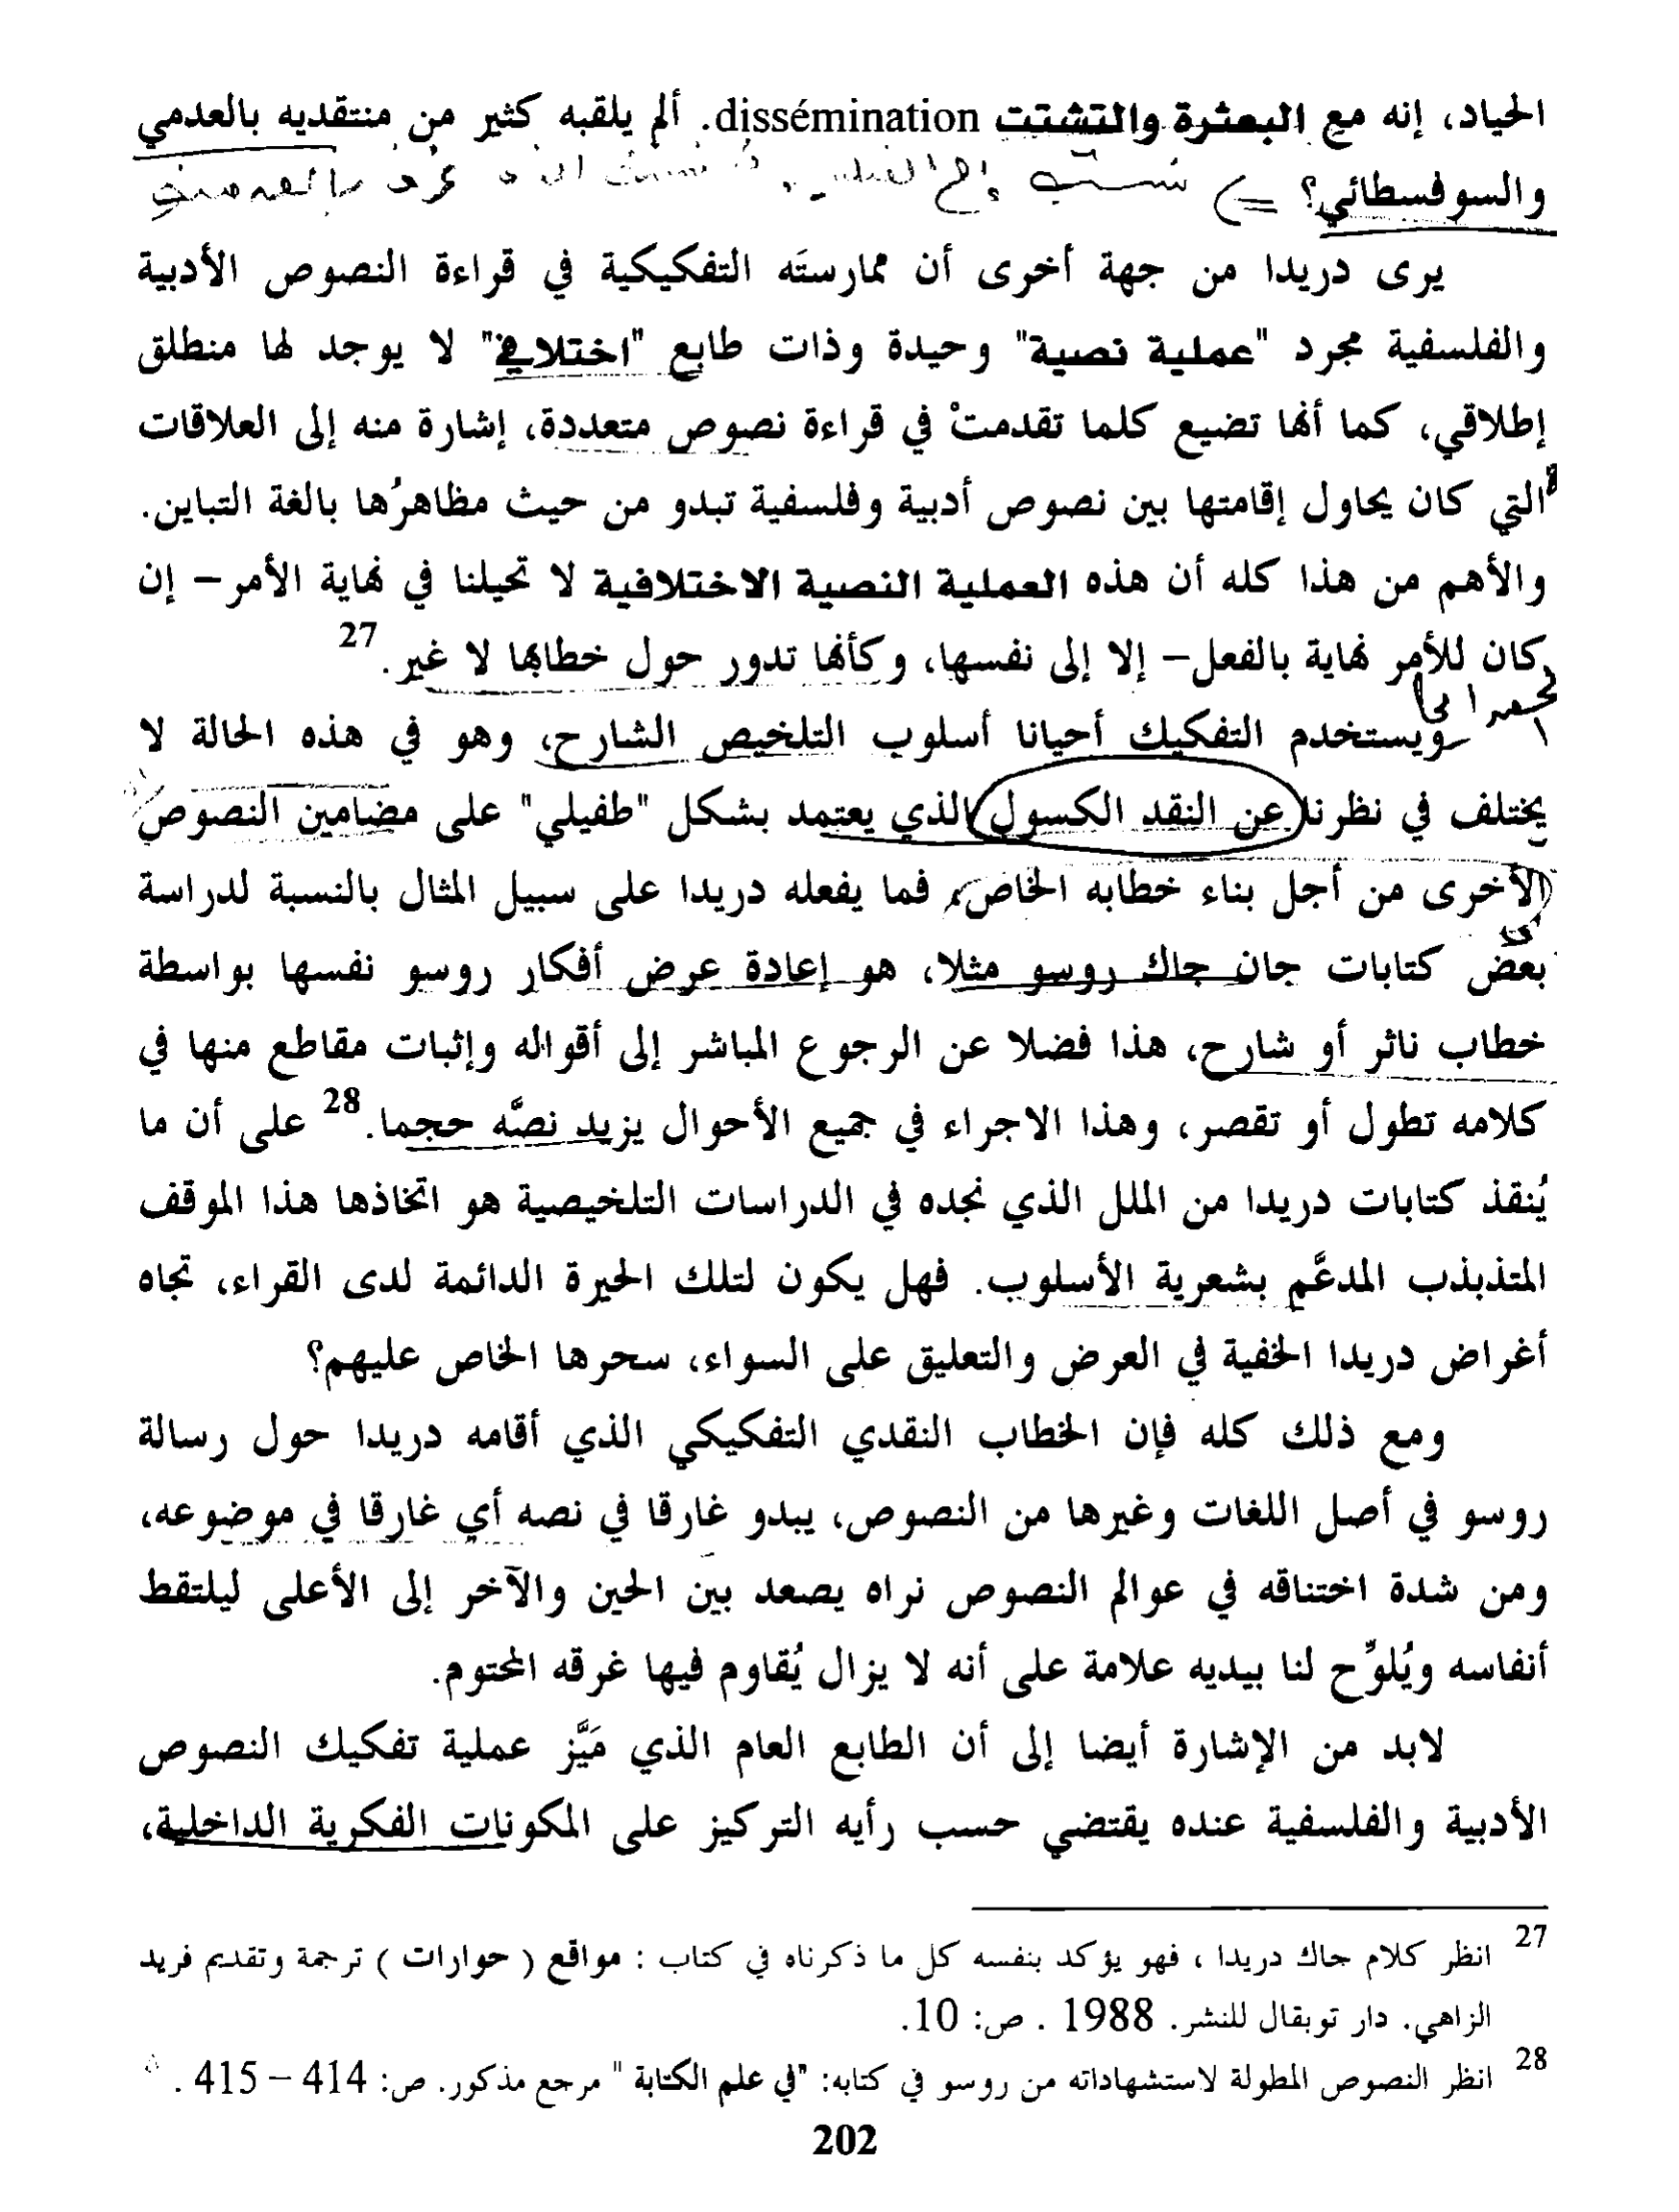 الحياد، إنه مع البعثرة والتشتت dissémination. ألم يلقبه كثير من منتقديه بالعدمي
والسوفسطائي؟
يرى دريدا من جهة أخرى أن ممارستَه التفكيكية في قراءة النصوص الأدبية
والفلسفية مجرد "عملية نصية" وحيدة وذات طابع "اختلافي" لا يوجد لها منطلق
إطلاقي، كما أنها تضيع كلما تقدمتْ في قراءة نصوص متعددة، إشارة منه إلى العلاقات
التي كان يحاول إقامتها بين نصوص أدبية وفلسفية تبدو من حيث مظاهرُها بالغة التباين.
والأهم من هذا كله أن هذه العملية النصية الاختلافية لا تحيلنا في نهاية الأمر– إن
كان للأمر نهاية بالفعل– إلا إلى نفسها، وكأنها تدور حول خطابها لا غير.27
ويستخدم التفكيك أحيانا أسلوب التلخيص الشارح، وهو في هذه الحالة لا
يختلف في نظرنا عن النقد الكسول الذي يعتمد بشكل "طفيلي" على مضامين النصوص
الأخرى من أجل بناء خطابه الخاص، فما يفعله دريدا على سبيل المثال بالنسبة لدراسة
بعض كتابات جان جاك روسو مثلا، هو إعادة عرض أفكار روسو نفسها بواسطة
خطاب ناثر أو شارح، هذا فضلا عن الرجوع المباشر إلى أقواله وإثبات مقاطع منها في
كلامه تطول أو تقصر، وهذا الاجراء في جميع الأحوال يزيد نصَّه حجما.28 على أن ما
يُنقذ كتابات دريدا من الملل الذي نجده في الدراسات التلخيصية هو اتخاذها هذا الموقف
المتذبذب المدعَّم بشعرية الأسلوب. فهل يكون لتلك الحيرة الدائمة لدى القراء، تجاه
أغراض دريدا الخفية في العرض والتعليق على السواء، سحرها الخاص عليهم؟
ومع ذلك كله فإن الخطاب النقدي التفكيكي الذي أقامه دريدا حول رسالة
روسو في أصل اللغات وغيرها من النصوص، يبدو غارقا في نصه أي غارقا في موضوعه،
ومن شدة اختناقه في عوالم النصوص نراه يصعد بين الحين والآخر إلى الأعلى ليلتقط
أنفاسه ويُلوِّح لنا بيديه علامة على أنه لا يزال يُقاوم فيها غرقه المحتوم.
لابد من الإشارة أيضا إلى أن الطابع العام الذي مَيَّز عملية تفكيك النصوص
الأدبية والفلسفية عنده يقتضي حسب رأيه التركيز على المكونات الفكرية الداخلية،
27 انظر كلام جاك دريدا ، فهو يؤكد بنفسه كل ما ذكرناه في كتاب : مواقع ( حوارات ) ترجمة وتقديم فريد
الزاهي. دار توبقال للنشر. 1988 . ص: 10.
28 انظر النصوص المطولة لاستشهاداته من روسو في كتابه: "في علم الكتابة " مرجع مذكور. ص: 414 – 415 .
202